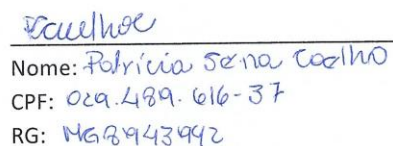 Nome: Patrícia Sena Coelho
CPF: 029.489.616-37
RG: MG8943942